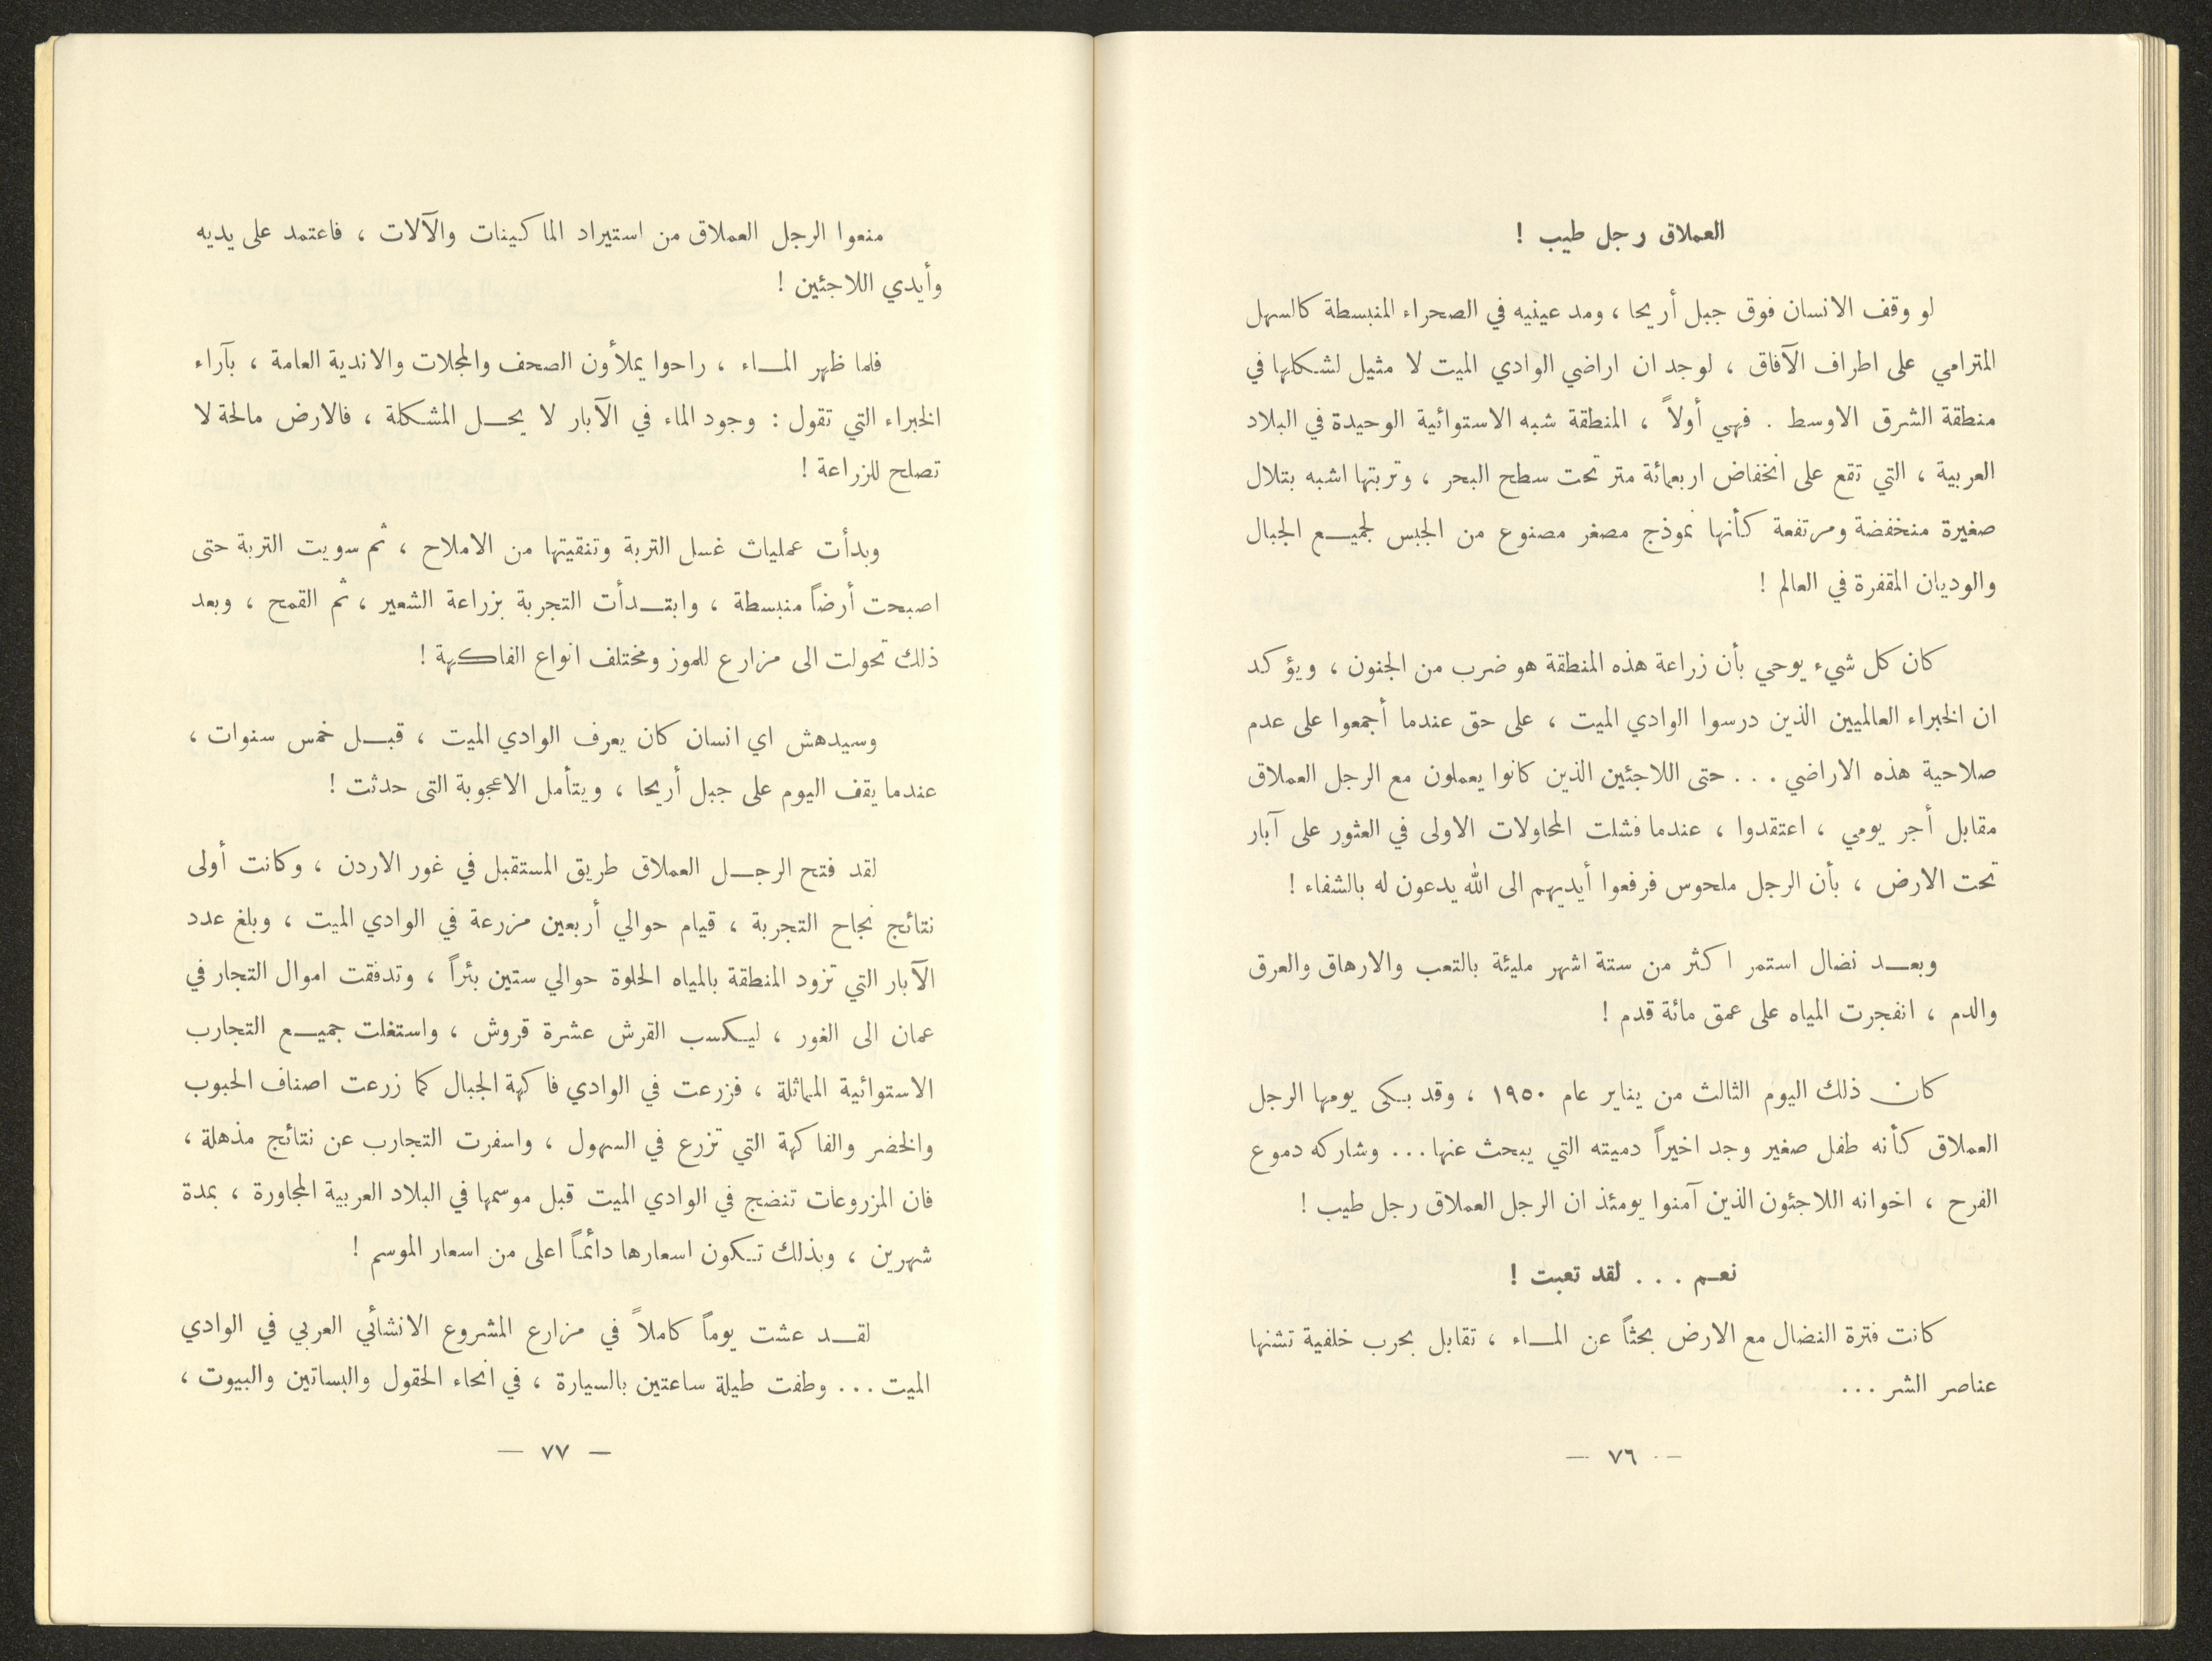 العملاق رجل طيب !
لو وقف الانسان فوق جبل أريحا ، ومد عينيه في الصحراء المنبسطة كالسهل
المترامي على اطراف الآفاق ، لوجد ان اراضي الوادي الميت لا مثيل لشكلها في
منطقة الشرق الاوسط . فهي أولاً ، المنطقة شبه الاستوائية الوحيدة في البلاد
العربية ، التي تقع على انخفاض اربعمائة متر تحت سطح البحر ، وتربتها اشبه بتلال
صغيرة منخفضة ومرتفعة كأنها نموذج مصغر مصنوع من الجبس لجميع الجبال
والوديان المقفرة في العالم !
كان كل شيء يوحي بأن زراعة هذه المنطقة هو ضرب من الجنون ، ويؤكد
ان الخبراء العالميين الذين درسوا الوادي الميت ، على حق عندما أجمعوا على عدم
صلاحية هذه الاراضي ... حتى اللاجئين الذين كانوا يعملون مع الرجل العملاق
مقابل أجر يومي ، اعتقدوا ، عندما فشلت المحاولات الاولى في العثور على آبار
تحت الارض ، بأن الرجل ملحوس فرفعوا أيديهم الى الله يدعون له بالشفاء !
وبعد نضال استمر اكثر من ستة اشهر مليئة بالتعب والارهاق والعرق
والدم ، انفجرت المياه على عمق مائة قدم !
كان ذلك اليوم الثالث من يناير عام ١٩٥٠ ، وقد بكى يومها الرجل
العملاق كأنه طفل صغير وجد اخيراً دميته التي يبحث عنها ... وشاركه دموع
الفرح ، اخوانه اللاجئون الذين آمنوا يومئذ ان الرجل العملاق رجل طيب !
نعم ... لقد تعبت !
كانت فترة النضال مع الارض بحثاً عن الماء ، تقابل بحرب خلفية تشنها
عناصر الشر ...
— ٧٦ —
منعوا الرجل العملاق من استيراد الماكينات والآلات ، فاعتمد على يديه
وأيدي اللاجئين !
فلما ظهر الماء ، راحوا يملأون الصحف والمجلات والاندية العامة ، بآراء
الخبراء التي تقول : وجود الماء في الآبار لا يحل المشكلة ، فالارض مالحة لا
تصلح للزراعة !
وبدأت عمليات غسل التربة وتنقيتها من الاملاح ، ثم سويت التربة حتى
اصبحت أرضاً منبسطة ، وابتدأت التجربة بزراعة الشعير ، ثم القمح ، وبعد
ذلك تحولت الى مزارع للموز ومختلف انواع الفاكهة !
وسيدهش اي انسان كان يعرف الوادي الميت ، قبل خمس سنوات ،
عندما يقف اليوم على جبل أريحا ، ويتأمل الاعجوبة التى حدثت !
لقد فتح الرجل العملاق طريق المستقبل في غور الاردن ، وكانت أولى
نتائج نجاح التجربة ، قيام حوالي أربعين مزرعة في الوادي الميت ، وبلغ عدد
الآبار التي تزود المنطقة بالمياه الحلوة حوالي ستين بئراً ، وتدفقت اموال التجار في
عمان الى الغور ، ليكسب القرش عشرة قروش ، واستغلت جميع التجارب
الاستوائية المماثلة ، فزرعت في الوادي فاكهة الجبال كما زرعت اصناف الحبوب
والخضر والفاكهة التي تزرع في السهول ، واسفرت التجارب عن نتائج مذهلة ،
فان المزروعات تنضج في الوادي الميت قبل موسمها في البلاد العربية المجاورة ، بمدة
شهرين ، وبذلك تكون اسعارها دائماً اعلى من اسعار الموسم !
لقد عشت يوماً كاملاً في مزارع المشروع الانشائي العربي في الوادي
الميت ... وطفت طيلة ساعتين بالسيارة ، في انحاء الحقول والبساتين والبيوت ،
— ٧٧ —